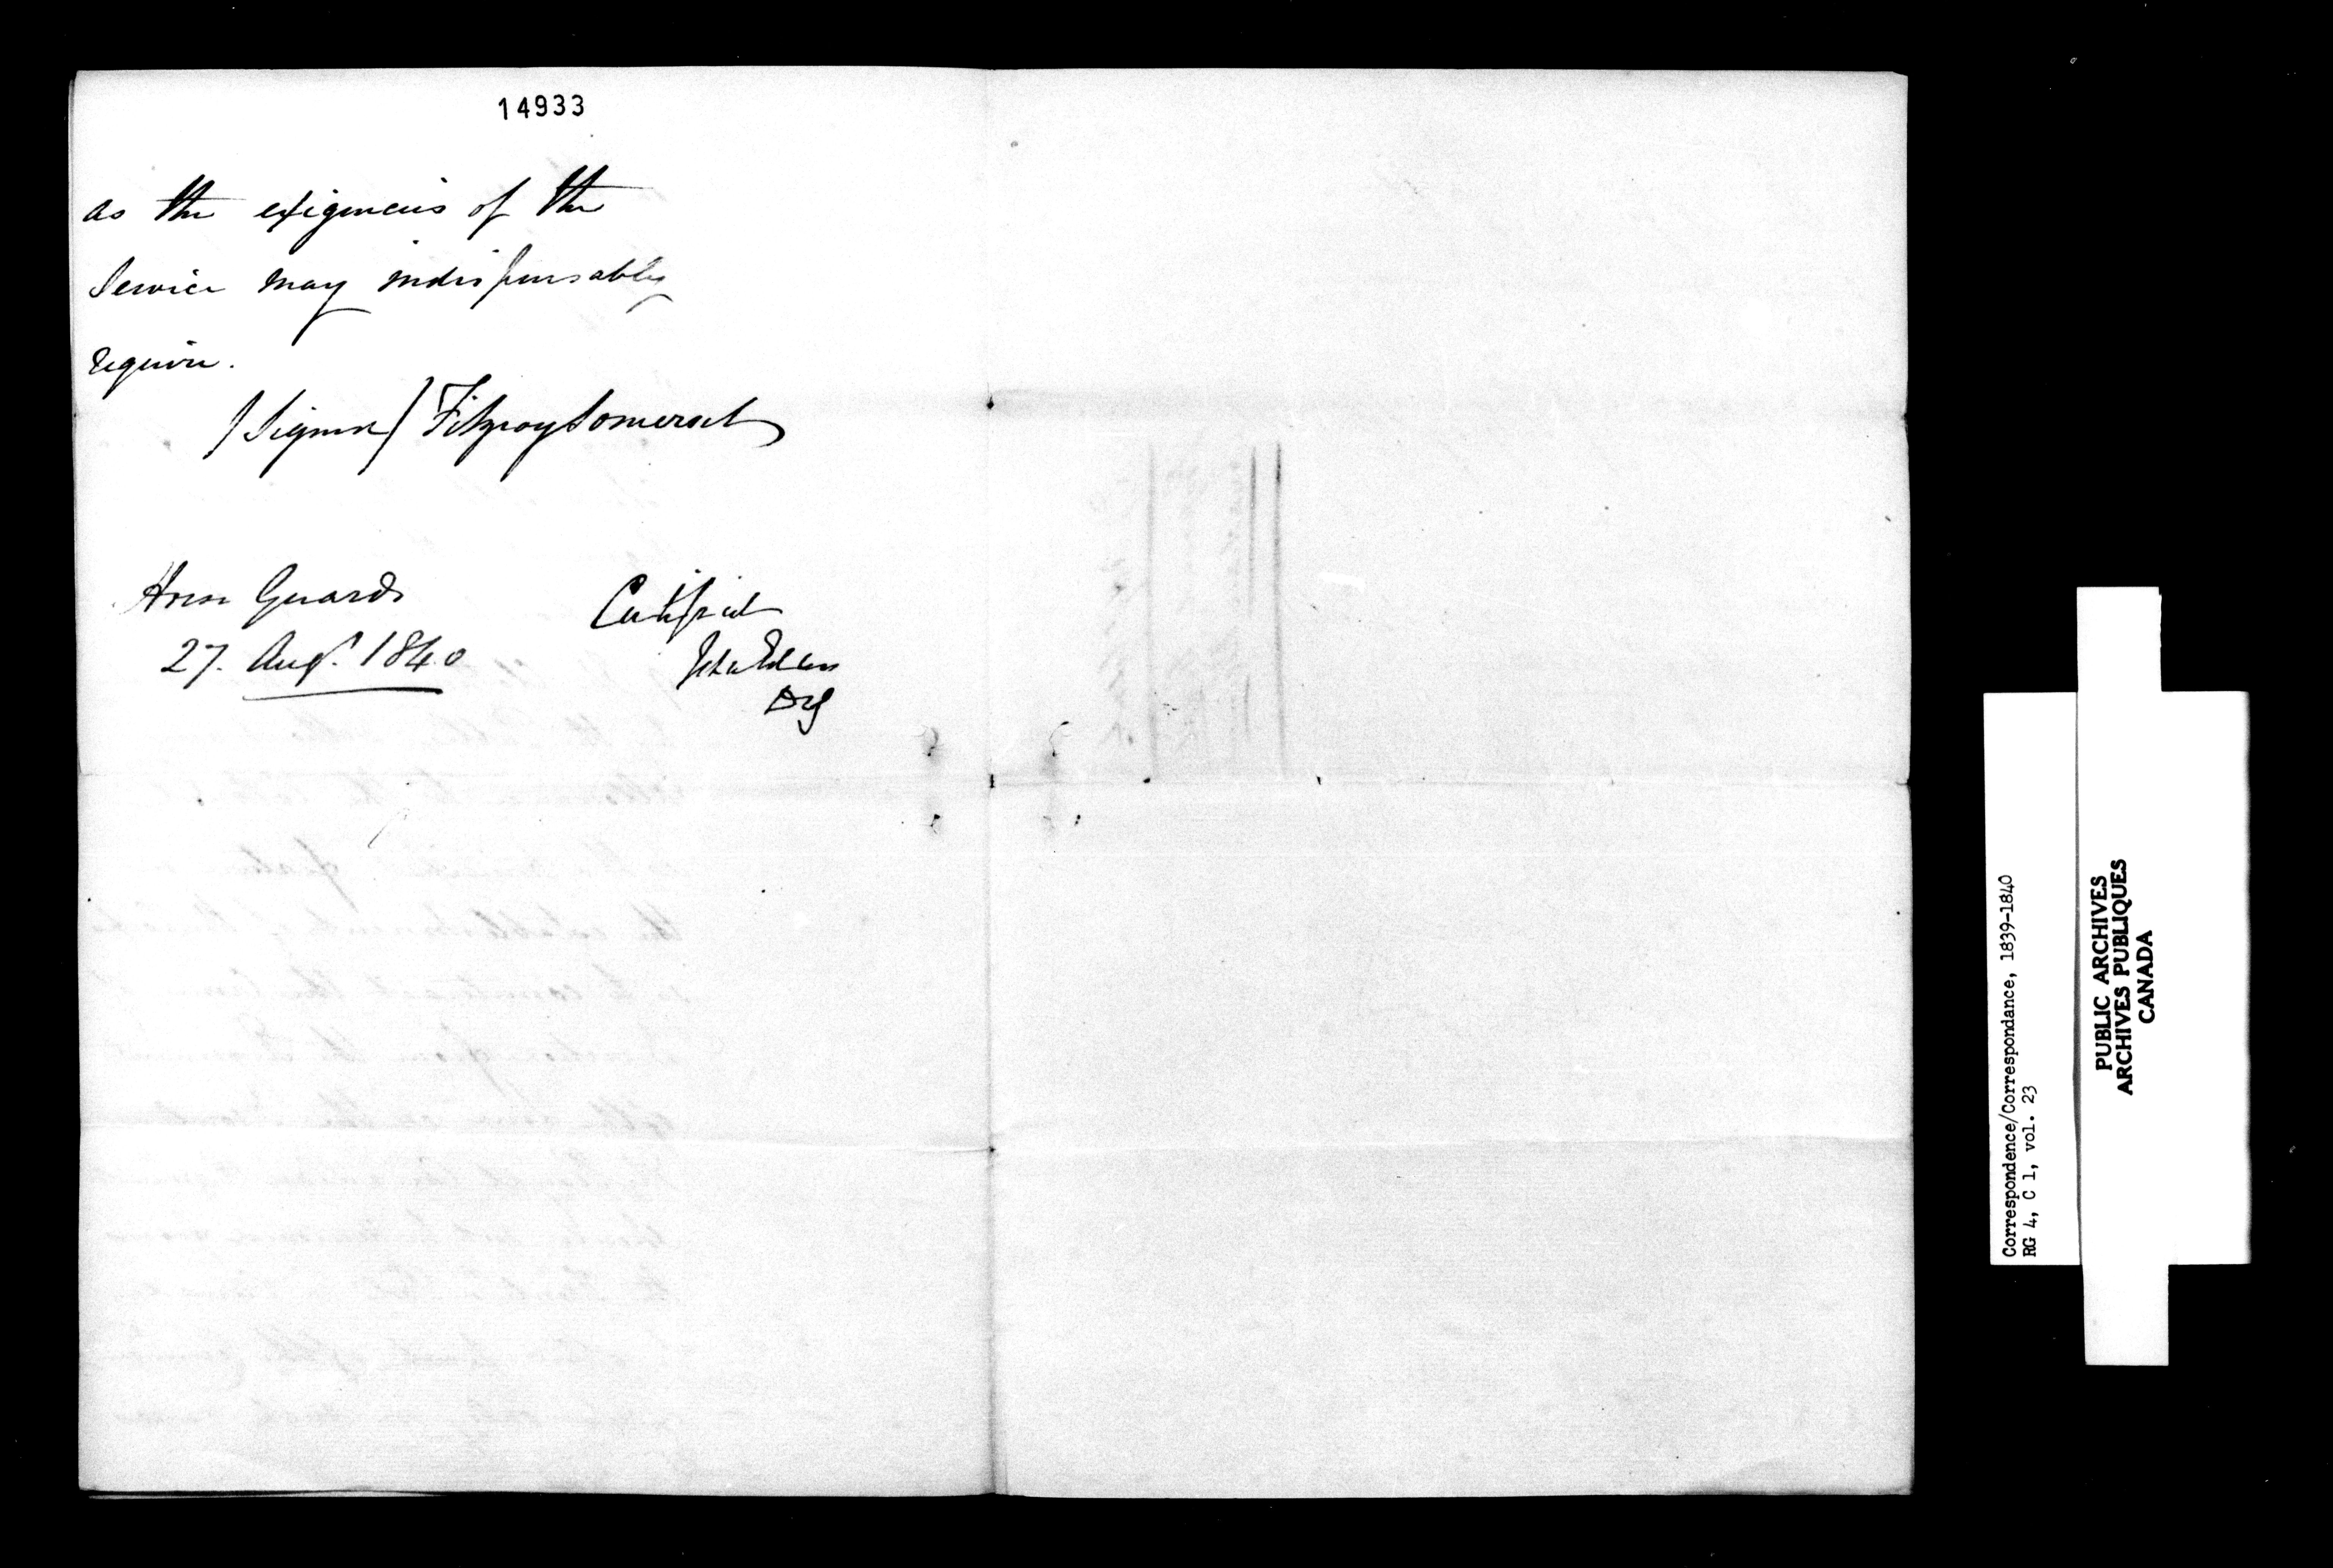 14933
as the exigencies of the
Service may indispensably
require.
(Signed) Fitzroy Somerset
Horse Guards
27. Augt. 1840
Certified
John Eden
DAG
Correspondence/Correspondance, 1839-1840
RG 4, C 1, vol. 23
PUBLIC ARCHIVES
ARCHIVES PUBLIQUES
CANADA